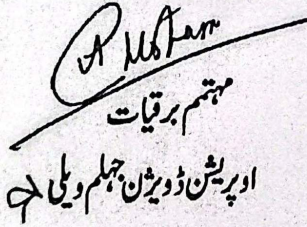 مہتمم برقیات
اوپریشن ڈویژن جہلم ویلی